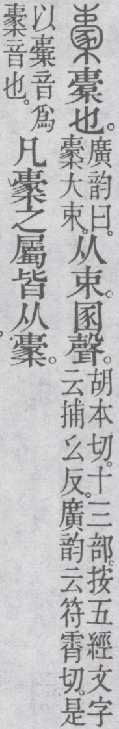 橐也。
廣韵曰。
㯻大束。
从束圂聲。
胡本切。十三部。按五經文字
云捕幺反。廣韵云符霄切。是
以㯱音爲
㯻音也。
凡㯻之屬皆从㯻。